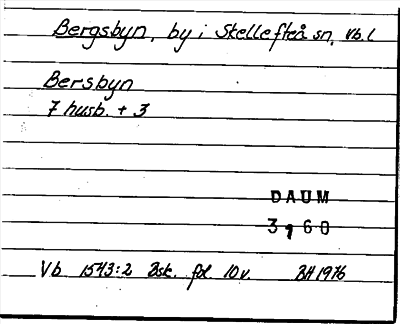 Bergsbyn, by i Skellefteå sn, Vb. l
Bersbyn
7 husb. + 3
DAUM
3160
Vb 1543:2 Bsk. fol. 10v. BH 1976